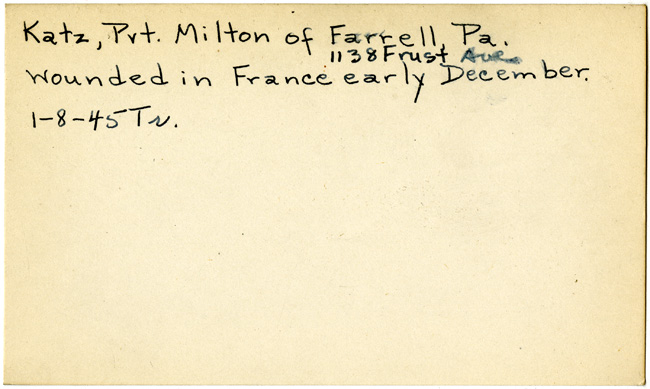 Katz, Pvt. Milton of Farrell, Pa.
1138 Frust Ave.
wounded in France early December.
1-8-45 Tr.